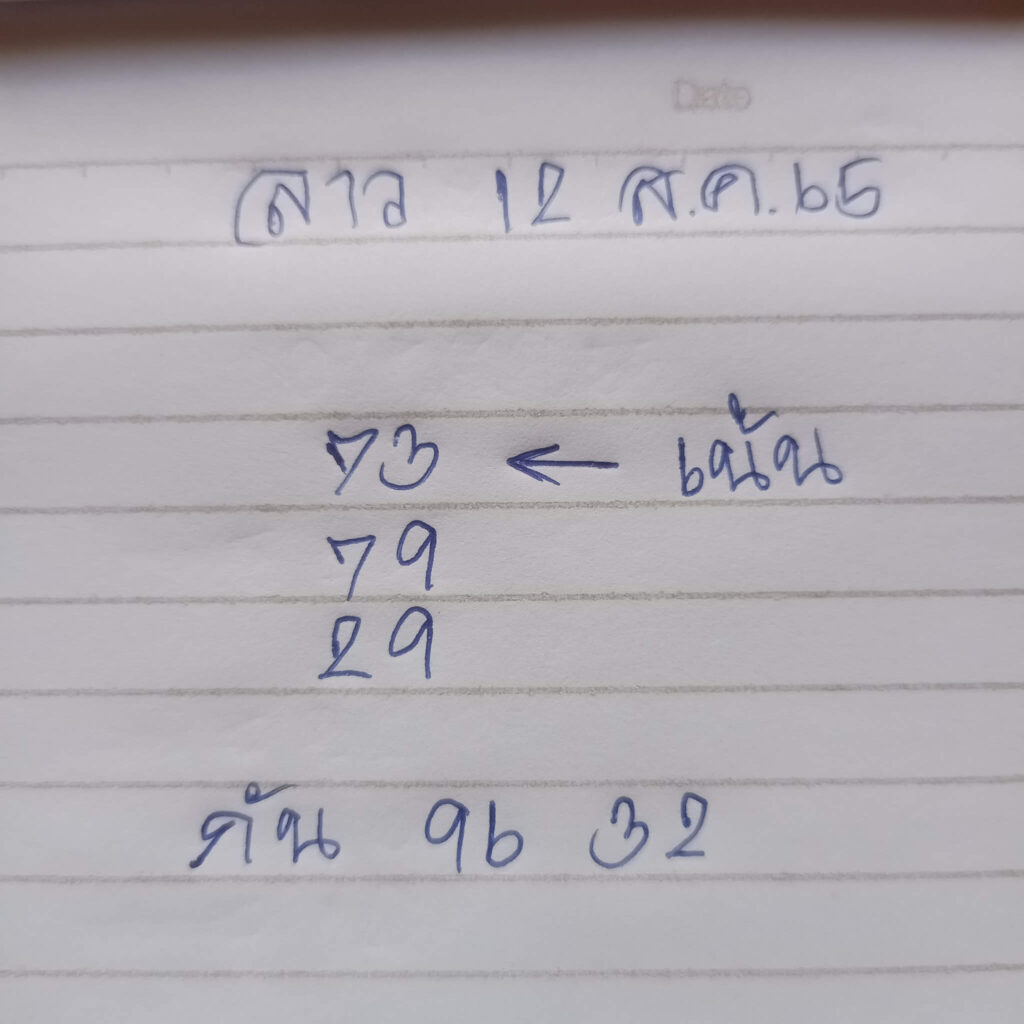 Date
ลาว 12 ส.ค.65
73 ← เน้น
79
29
กัน 96 32